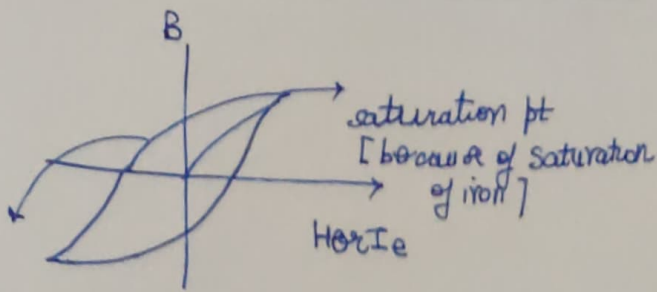 B
saturation pt
[because of saturation
of iron]
H or Ie